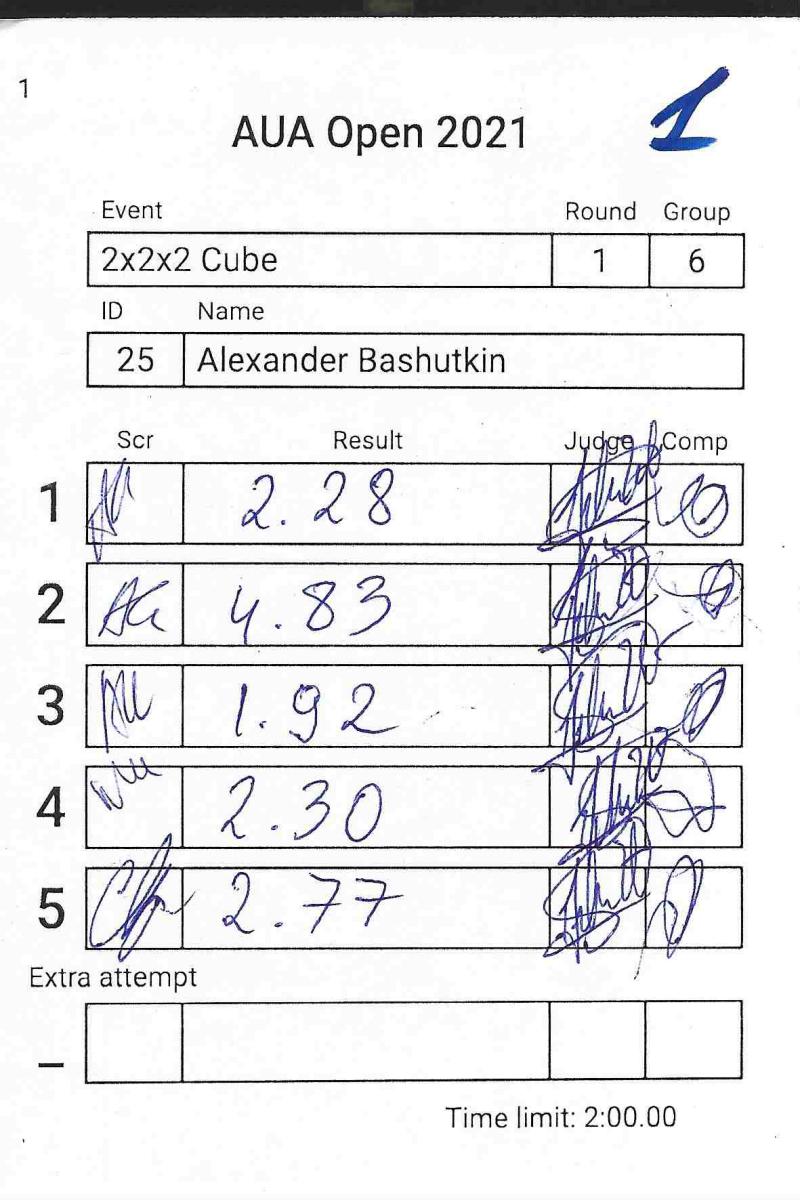 1
AUA Open 2021
1
Event Round Group
2x2x2 Cube 1 6
ID Name
25 Alexander Bashutkin
Scr Result Judge Comp
1 2.28
2 4.83
3 1.92
4 2.30
5 2.77
Extra attempt
_
Time limit: 2:00.00